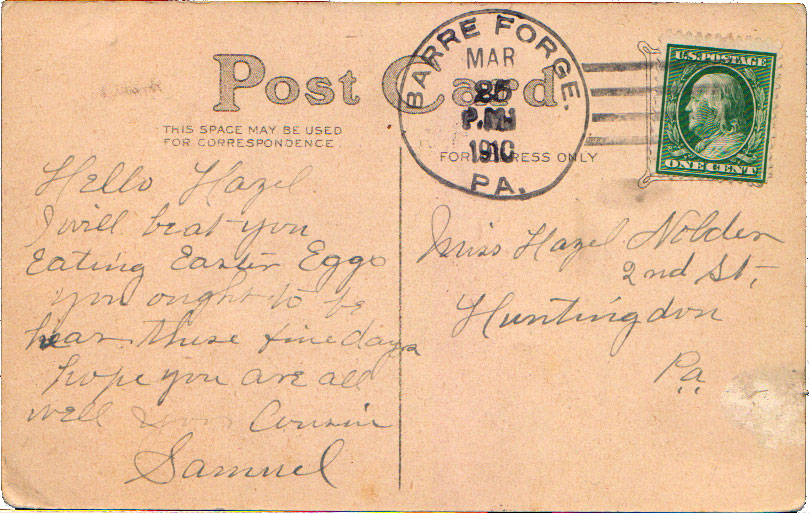 Post Card
THIS SPACE MAY BE USED
FOR CORRESPONDENCE
FOR ADDRESS ONLY
BARRE FORGE.
MAR
25
P.M
1910
PA.
U.S. POSTAGE
ONE CENT
Hello Hazel.
I will beat you
Eating Easter Eggs
you ought to be
hear these fine days
hope you are all
well your Cousin
Samuel
Miss Hazel Nolder
2nd St,
Huntingdon
Pa